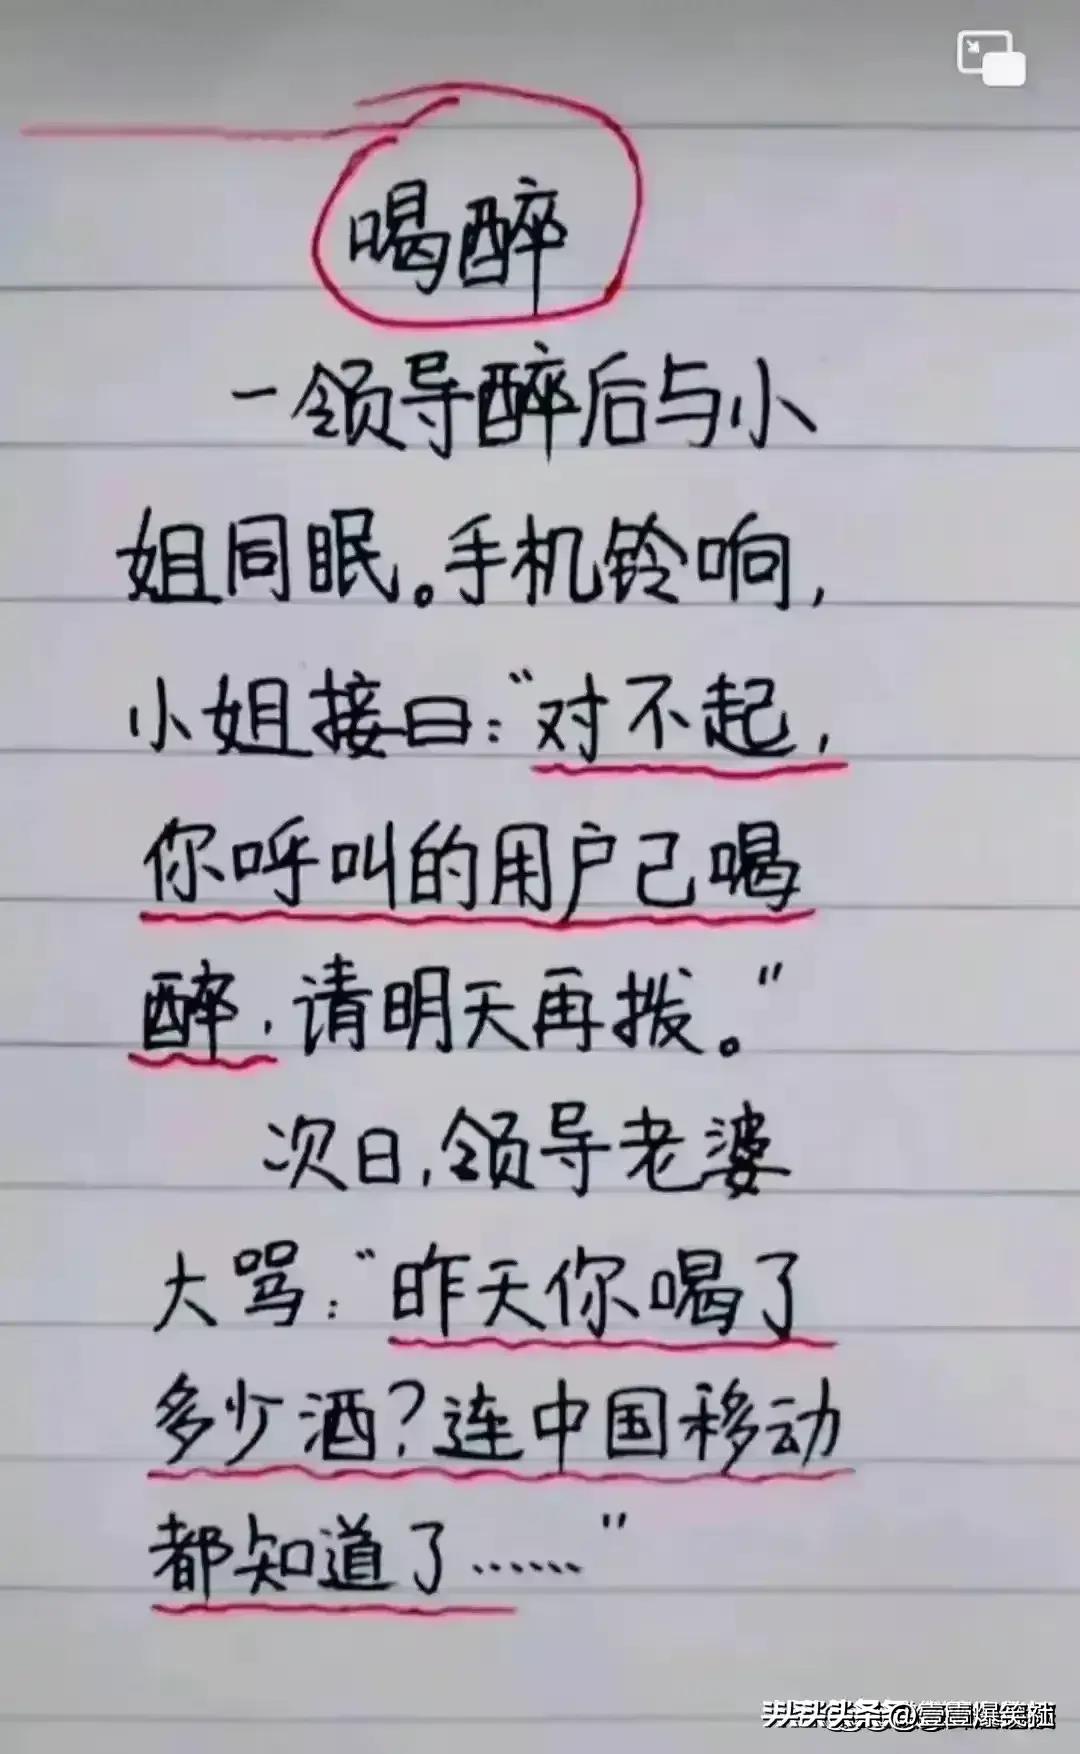 喝醉
一领导醉后与小
姐同眠。手机铃响,
小姐接曰:“对不起,
你呼叫的用户已喝
醉,请明天再拨。”
次日,领导老婆
大骂:“昨天你喝了
多少酒?连中国移动
都知道了……”
头条 @壹壹爆笑社